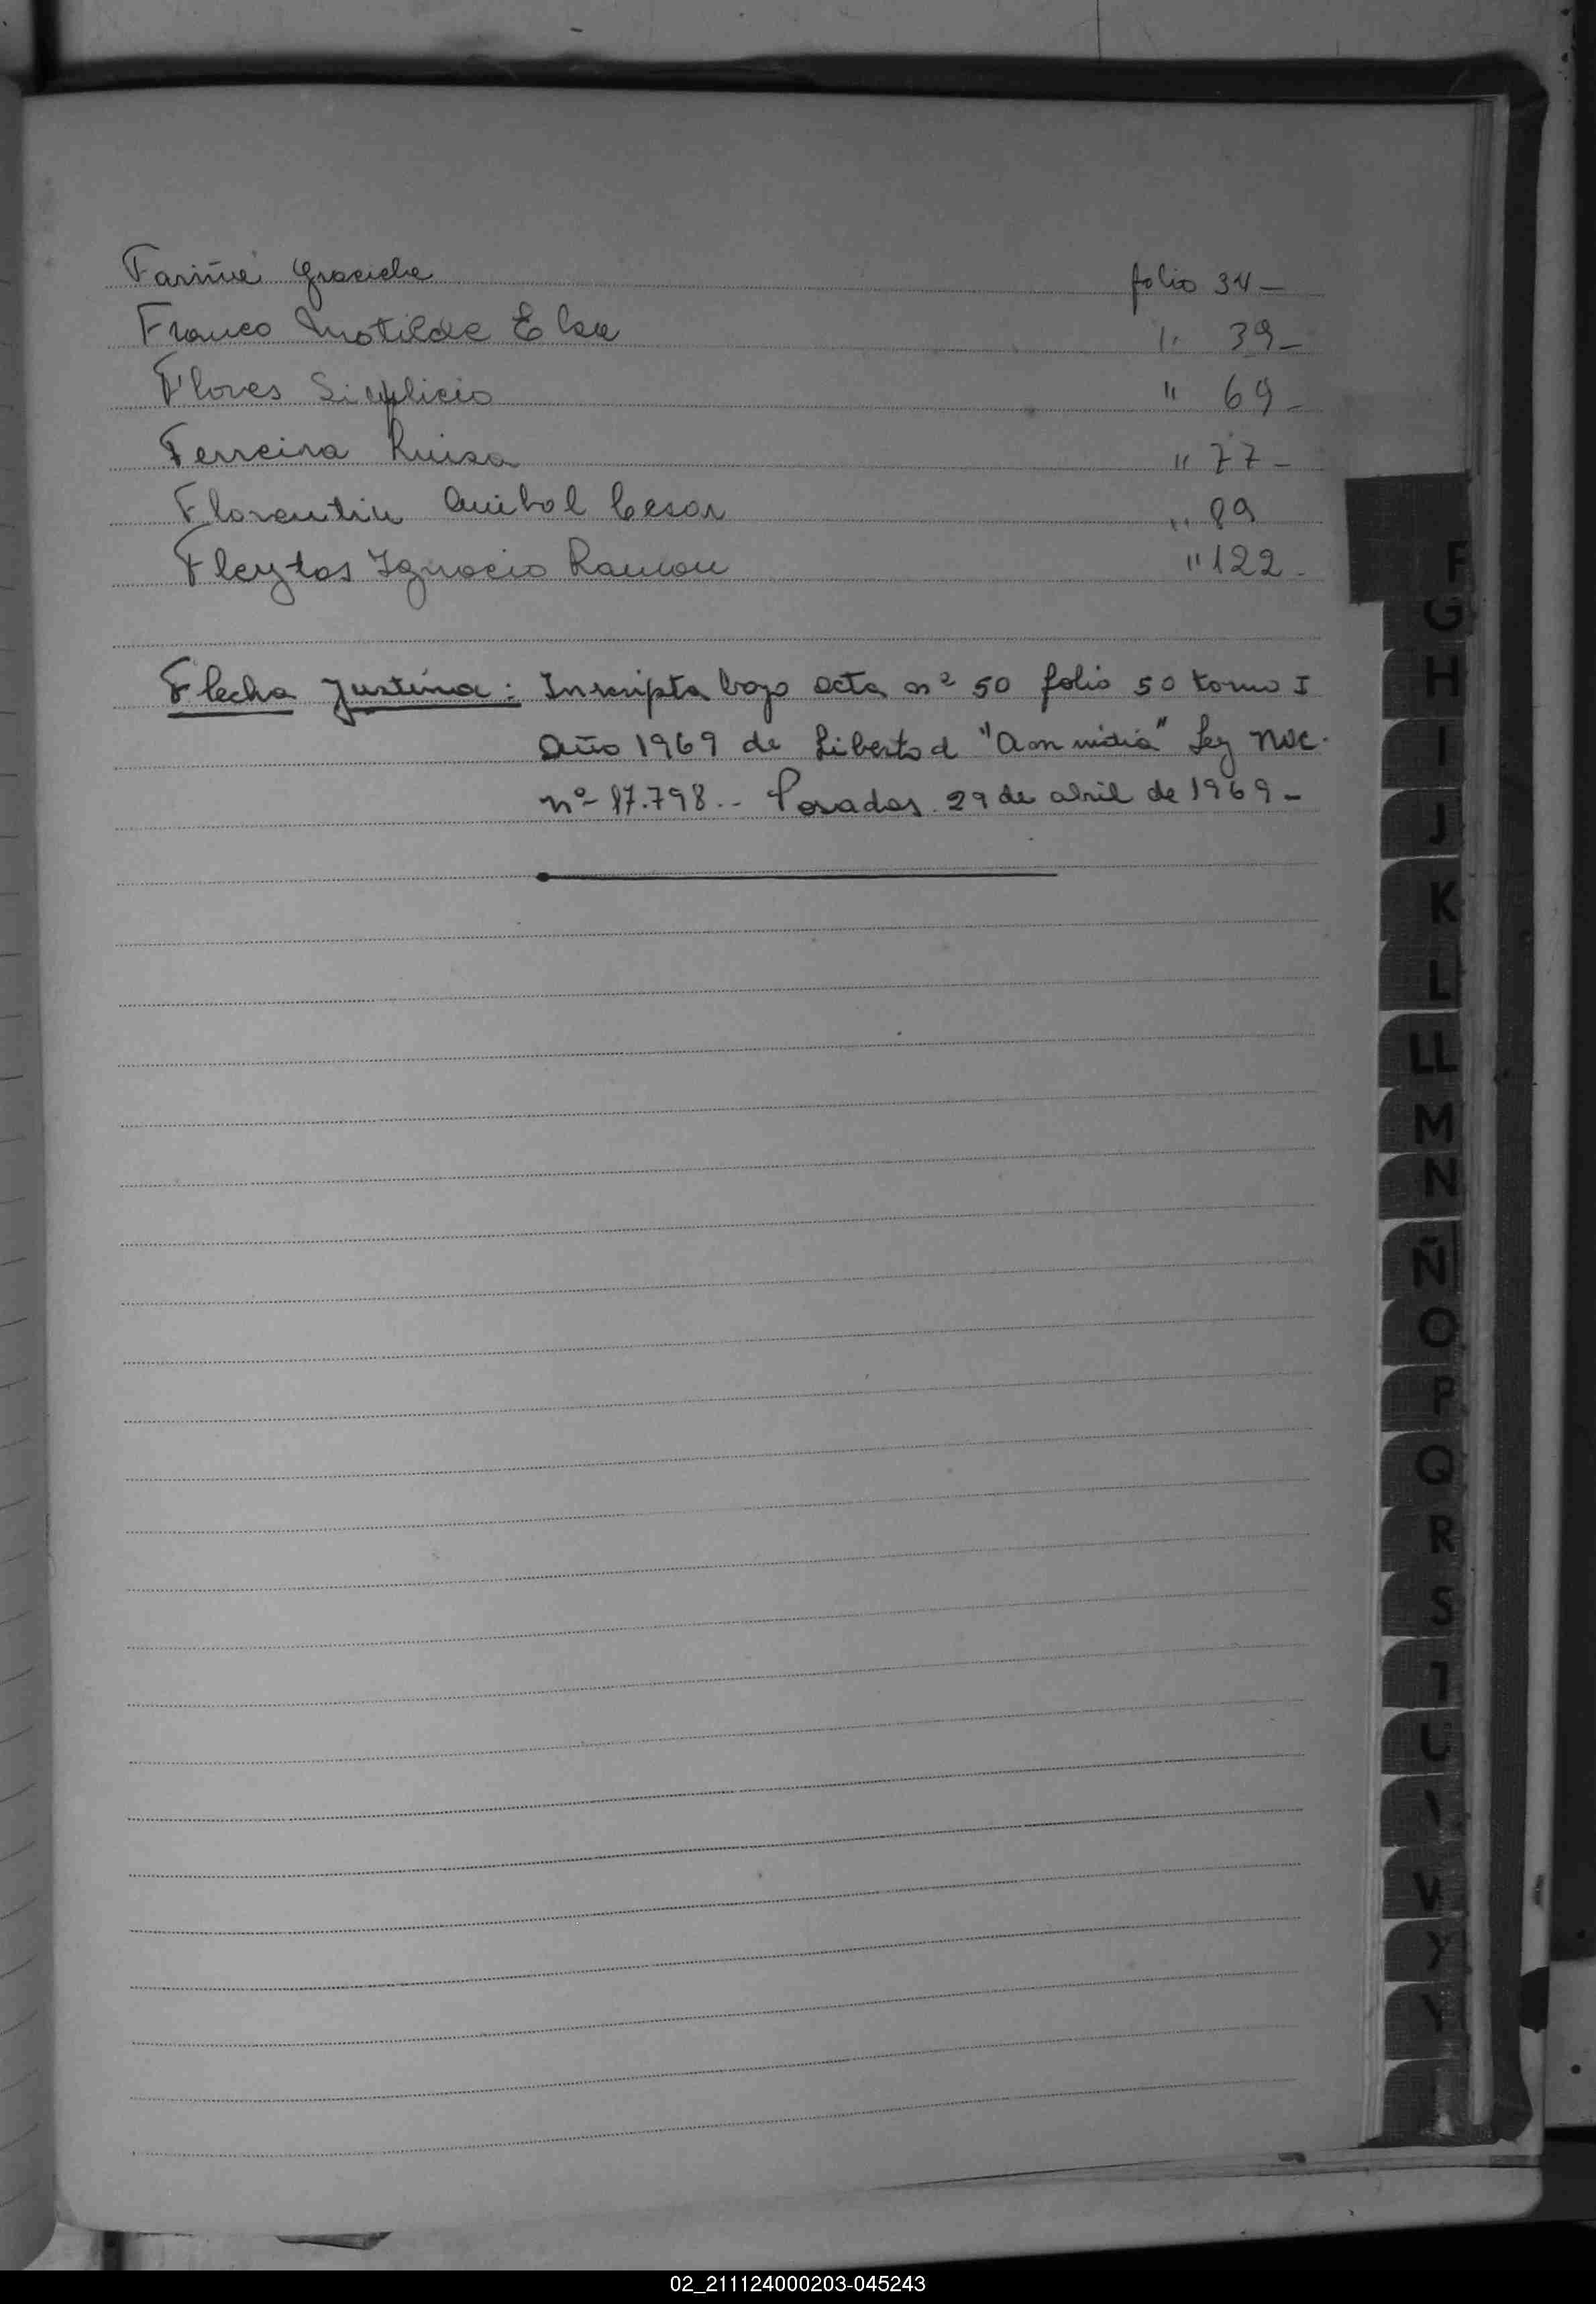 Fariña Graciela folio 34-
Franco Matilde Elsa " 39-
Flores Simplicio " 69-
Ferreira Luisa " 77-
Florentin Anibal Cesar " 89
Fleytas Ignacio Ramon " 122-
Flecha Justina: Inscripta bajo acta nº 50 folio 50 tomo I
Año 1969 de Libertad "Amnistia" Ley Nac.
nº 17.798.- Posadas 29 de abril de 1969-
F
G
H
I
J
K
L
LL
M
N
Ñ
O
P
Q
R
S
T
U
V
W
X
Y
02_211124000203-045243